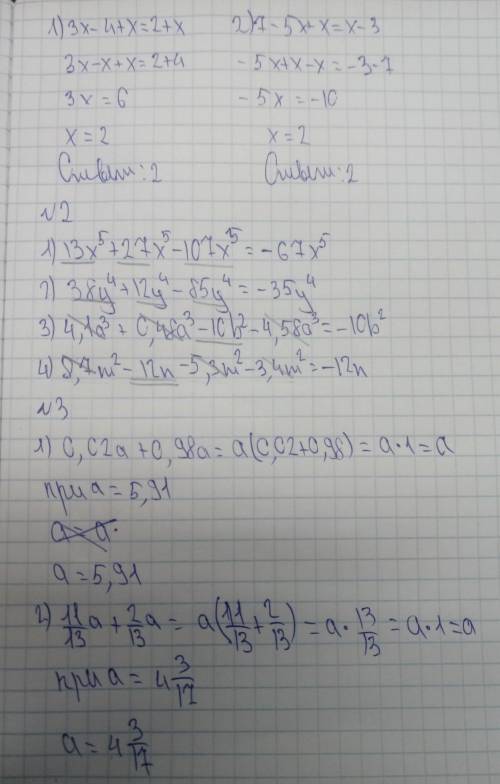 1) 3x-4+x=2+x
3x-x+x=2+4
3x=6
x=2
Ответ: 2
2) 7-5x+x=x-3
-5x+x-x=-3-7
-5x=-10
x=2
Ответ: 2
№2
1) 13x⁵+27x⁵-107x⁵=-67x⁵
2) 38y⁴+12y⁴-85y⁴=-35y⁴
3) 4,1a³+0,48a³-10b²-4,58a³=-10b²
4) 8,7m²-12n-5,3m²-3,4m²=-12n
№3
1) 0,02a+0,98a=a(0,02+0,98)=a·1=a
при a=5,91
a=a·
a=5,91
2) 11/13a+2/13a=a(11/13+2/13)=a·13/13=a·1=a
при a=4 3/17
a=4 3/17